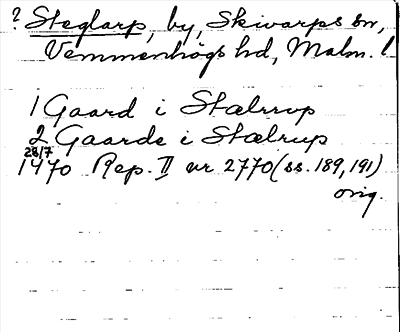 ? Steglarp, by, Skivarps sn,
Vemmenhögs hd, Malm. l
1 Gaard i Stælrup
2 Gaarde i Stælrup
28/7
1470 Rep. II nr 2770 (ss. 189, 191)
orig.